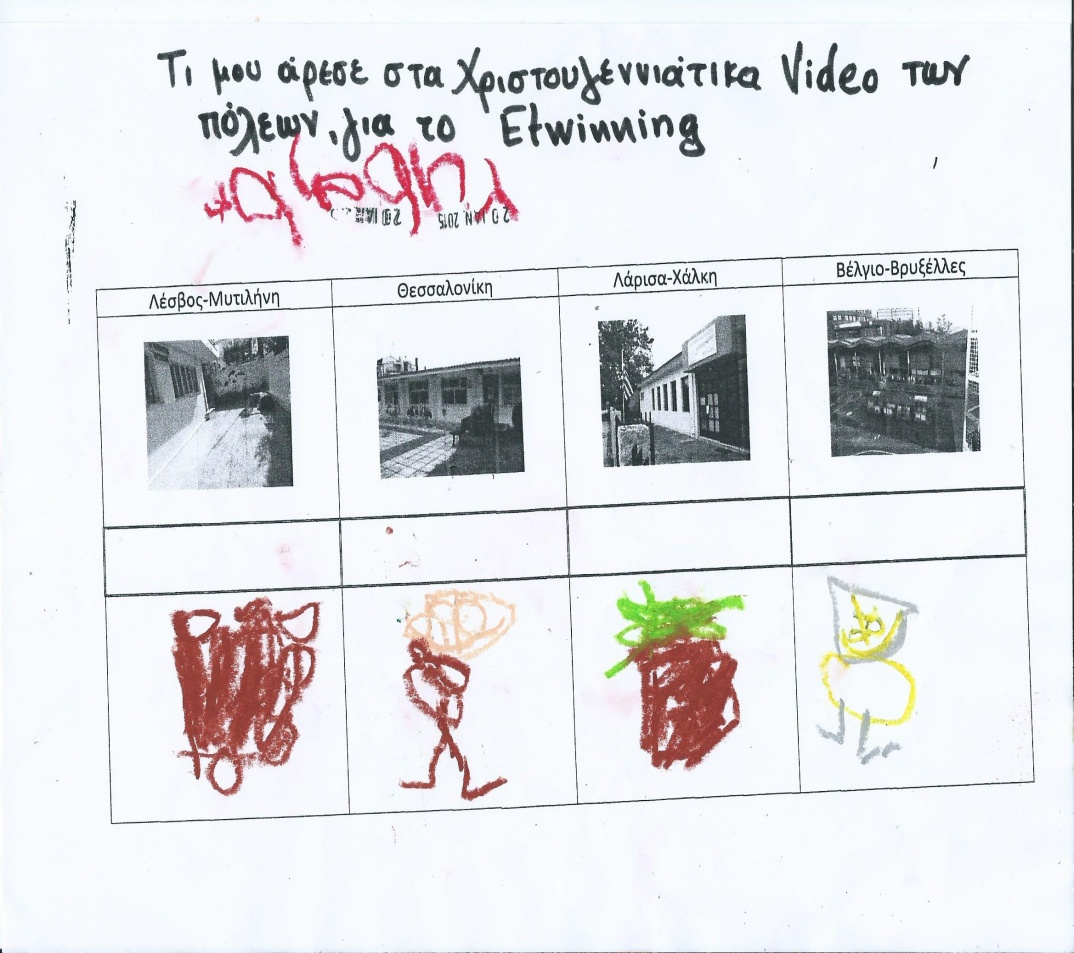 Τι μου άρεσε στα Χριστουγεννιάτικα Video των
πόλεων, για το Etwinning
20 ΙΑΝ 2015
Λέσβος-Μυτιλήνη
Θεσσαλονίκη
Λάρισα-Χάλκη
Βέλγιο-Βρυξέλλες